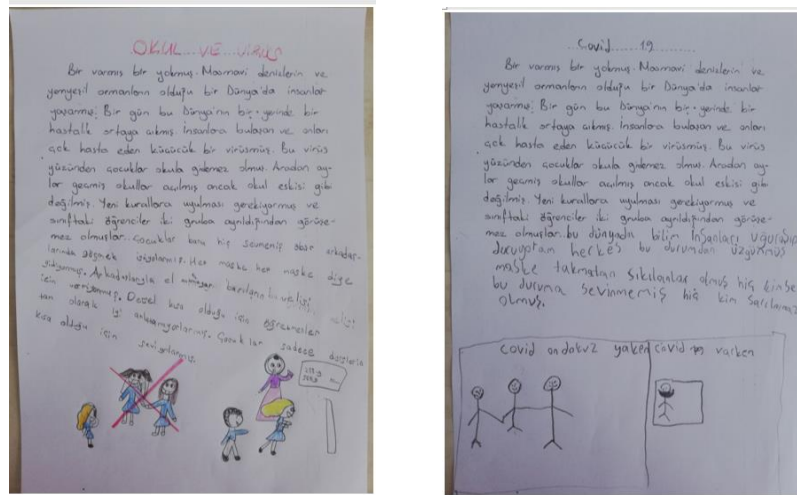 OKUL VE VİRÜS
Bir varmış bir yokmuş. Masmavi denizlerin ve
yemyeşil ormanların olduğu bir Dünya'da insanlar
yaşarmış. Bir gün bu Dünya'nın bir yerinde bir
hastalık ortaya çıkmış. İnsanlara bulaşan ve onları
çok hasta eden küçücük bir virüsmüş. Bu virüs
yüzünden çocuklar okula gidemez olmuş. Aradan ay-
lar geçmiş okullar açılmış ancak okul eskisi gibi
değilmiş. Yeni kurallara uyulması gerekiyormuş ve
sınıftaki öğrenciler iki gruba ayrıldığından görüşe-
mez olmuşlar. Çocuklar bunu hiç sevmemiş
Her maske her maske diye
gidiyormuş. Arkadaşlarıyla el
için Dersl kısa olduğu için öğretmenler
tam olarak iyi Çocuklar sadece dersler
kısa olduğu için seviyorlarmış.
Covid 19
Bir varmış bir yokmuş. Masmavi denizlerin ve
yemyeşil ormanların olduğu bir Dünya'da insanlar
yaşarmış. Bir gün bu Dünya'nın bir yerinde bir
hastalık ortaya çıkmış. İnsanlara bulaşan ve onları
çok hasta eden küçücük bir virüsmüş. Bu virüs
yüzünden çocuklar okula gidemez olmuş. Aradan ay-
lar geçmiş okullar açılmış ancak okul eskisi gibi
değilmiş. Yeni kurallara uyulması gerekiyormuş ve
sınıftaki öğrenciler iki gruba ayrıldığından görüşe-
mez olmuşlar. bu dünyadın bilim İnsanları uğuraşıp
duruyotam herkes bu durumdan üzgünmüş
maske takmatan sıkılanlar olmuş hiç kimse
bu duruma sevinmemiş hiç kim
olmuş.
covid on dokuz yaken
covid varken